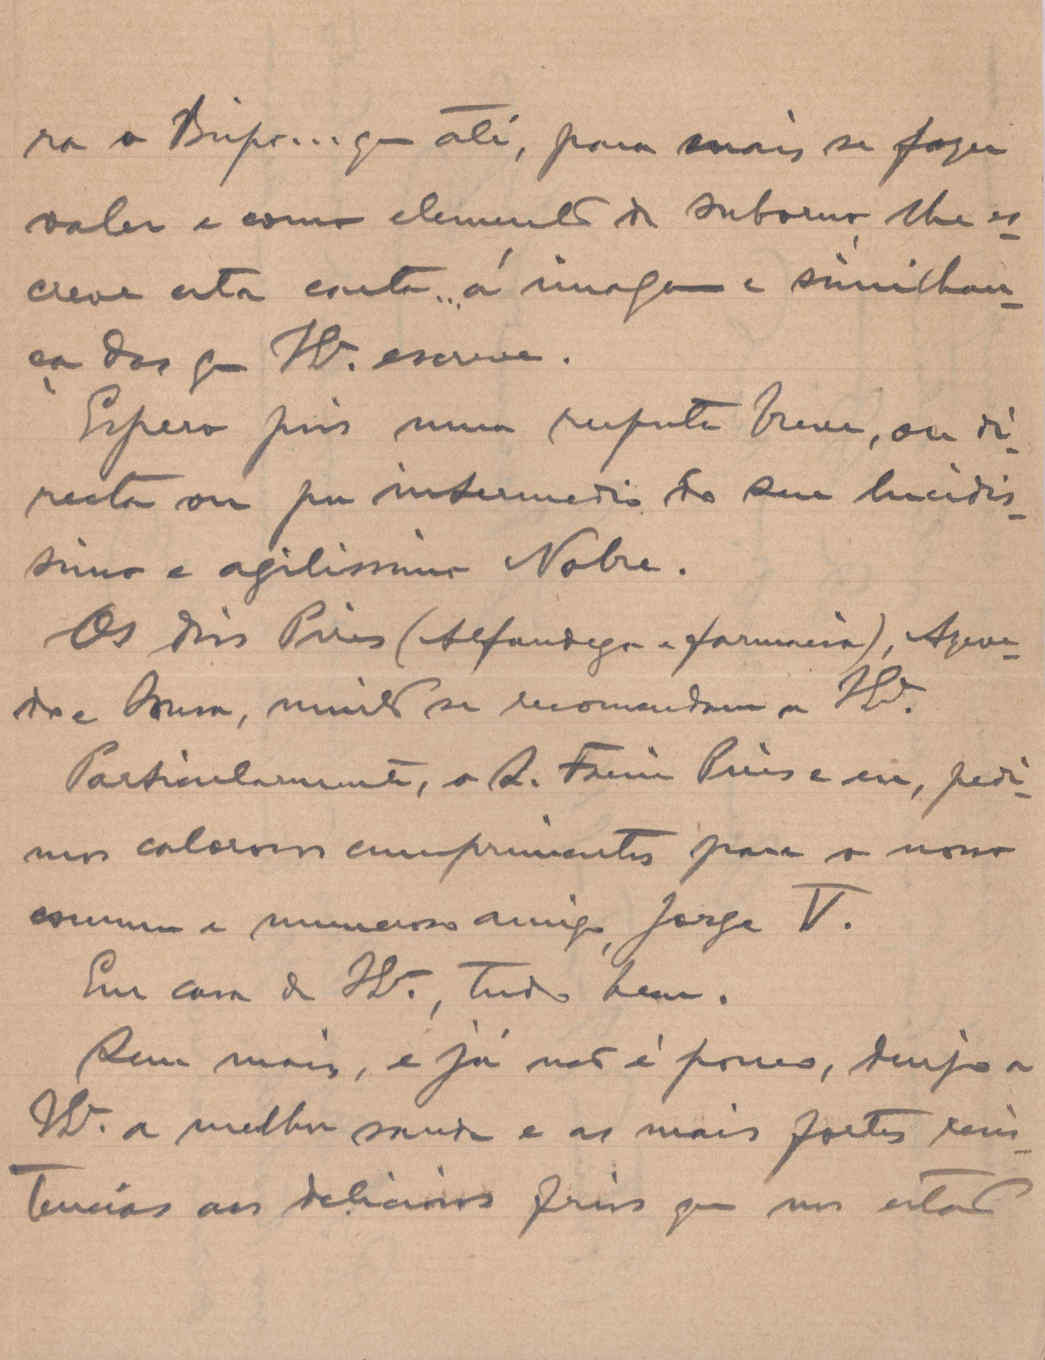 ra o Bispo... que até, para mais se fazer
valer e como elemento de suborno, lhe es-
creve esta carta... á imagem e similhan-
ça das que V. escreve.
Espero pois uma resposta breve, ou di-
recta ou por intermedio do seu lucidis-
simo e agilissimo Nobre.
Os dois Pires (Alfandega e farmacia), Azeve-
do e Sousa, muito se recomendam a V.
Particularmente, o S. Pires e eu, pedi-
mos calorosos cumprimentos para o nosso
comum e numeroso amigo, Jorge V.
Em casa de V., tudo bem.
Sem mais, e já não é pouco, desejo a
V. a melhor saude e as mais fortes resis-
tencias aos deliciosos frios que nos estão